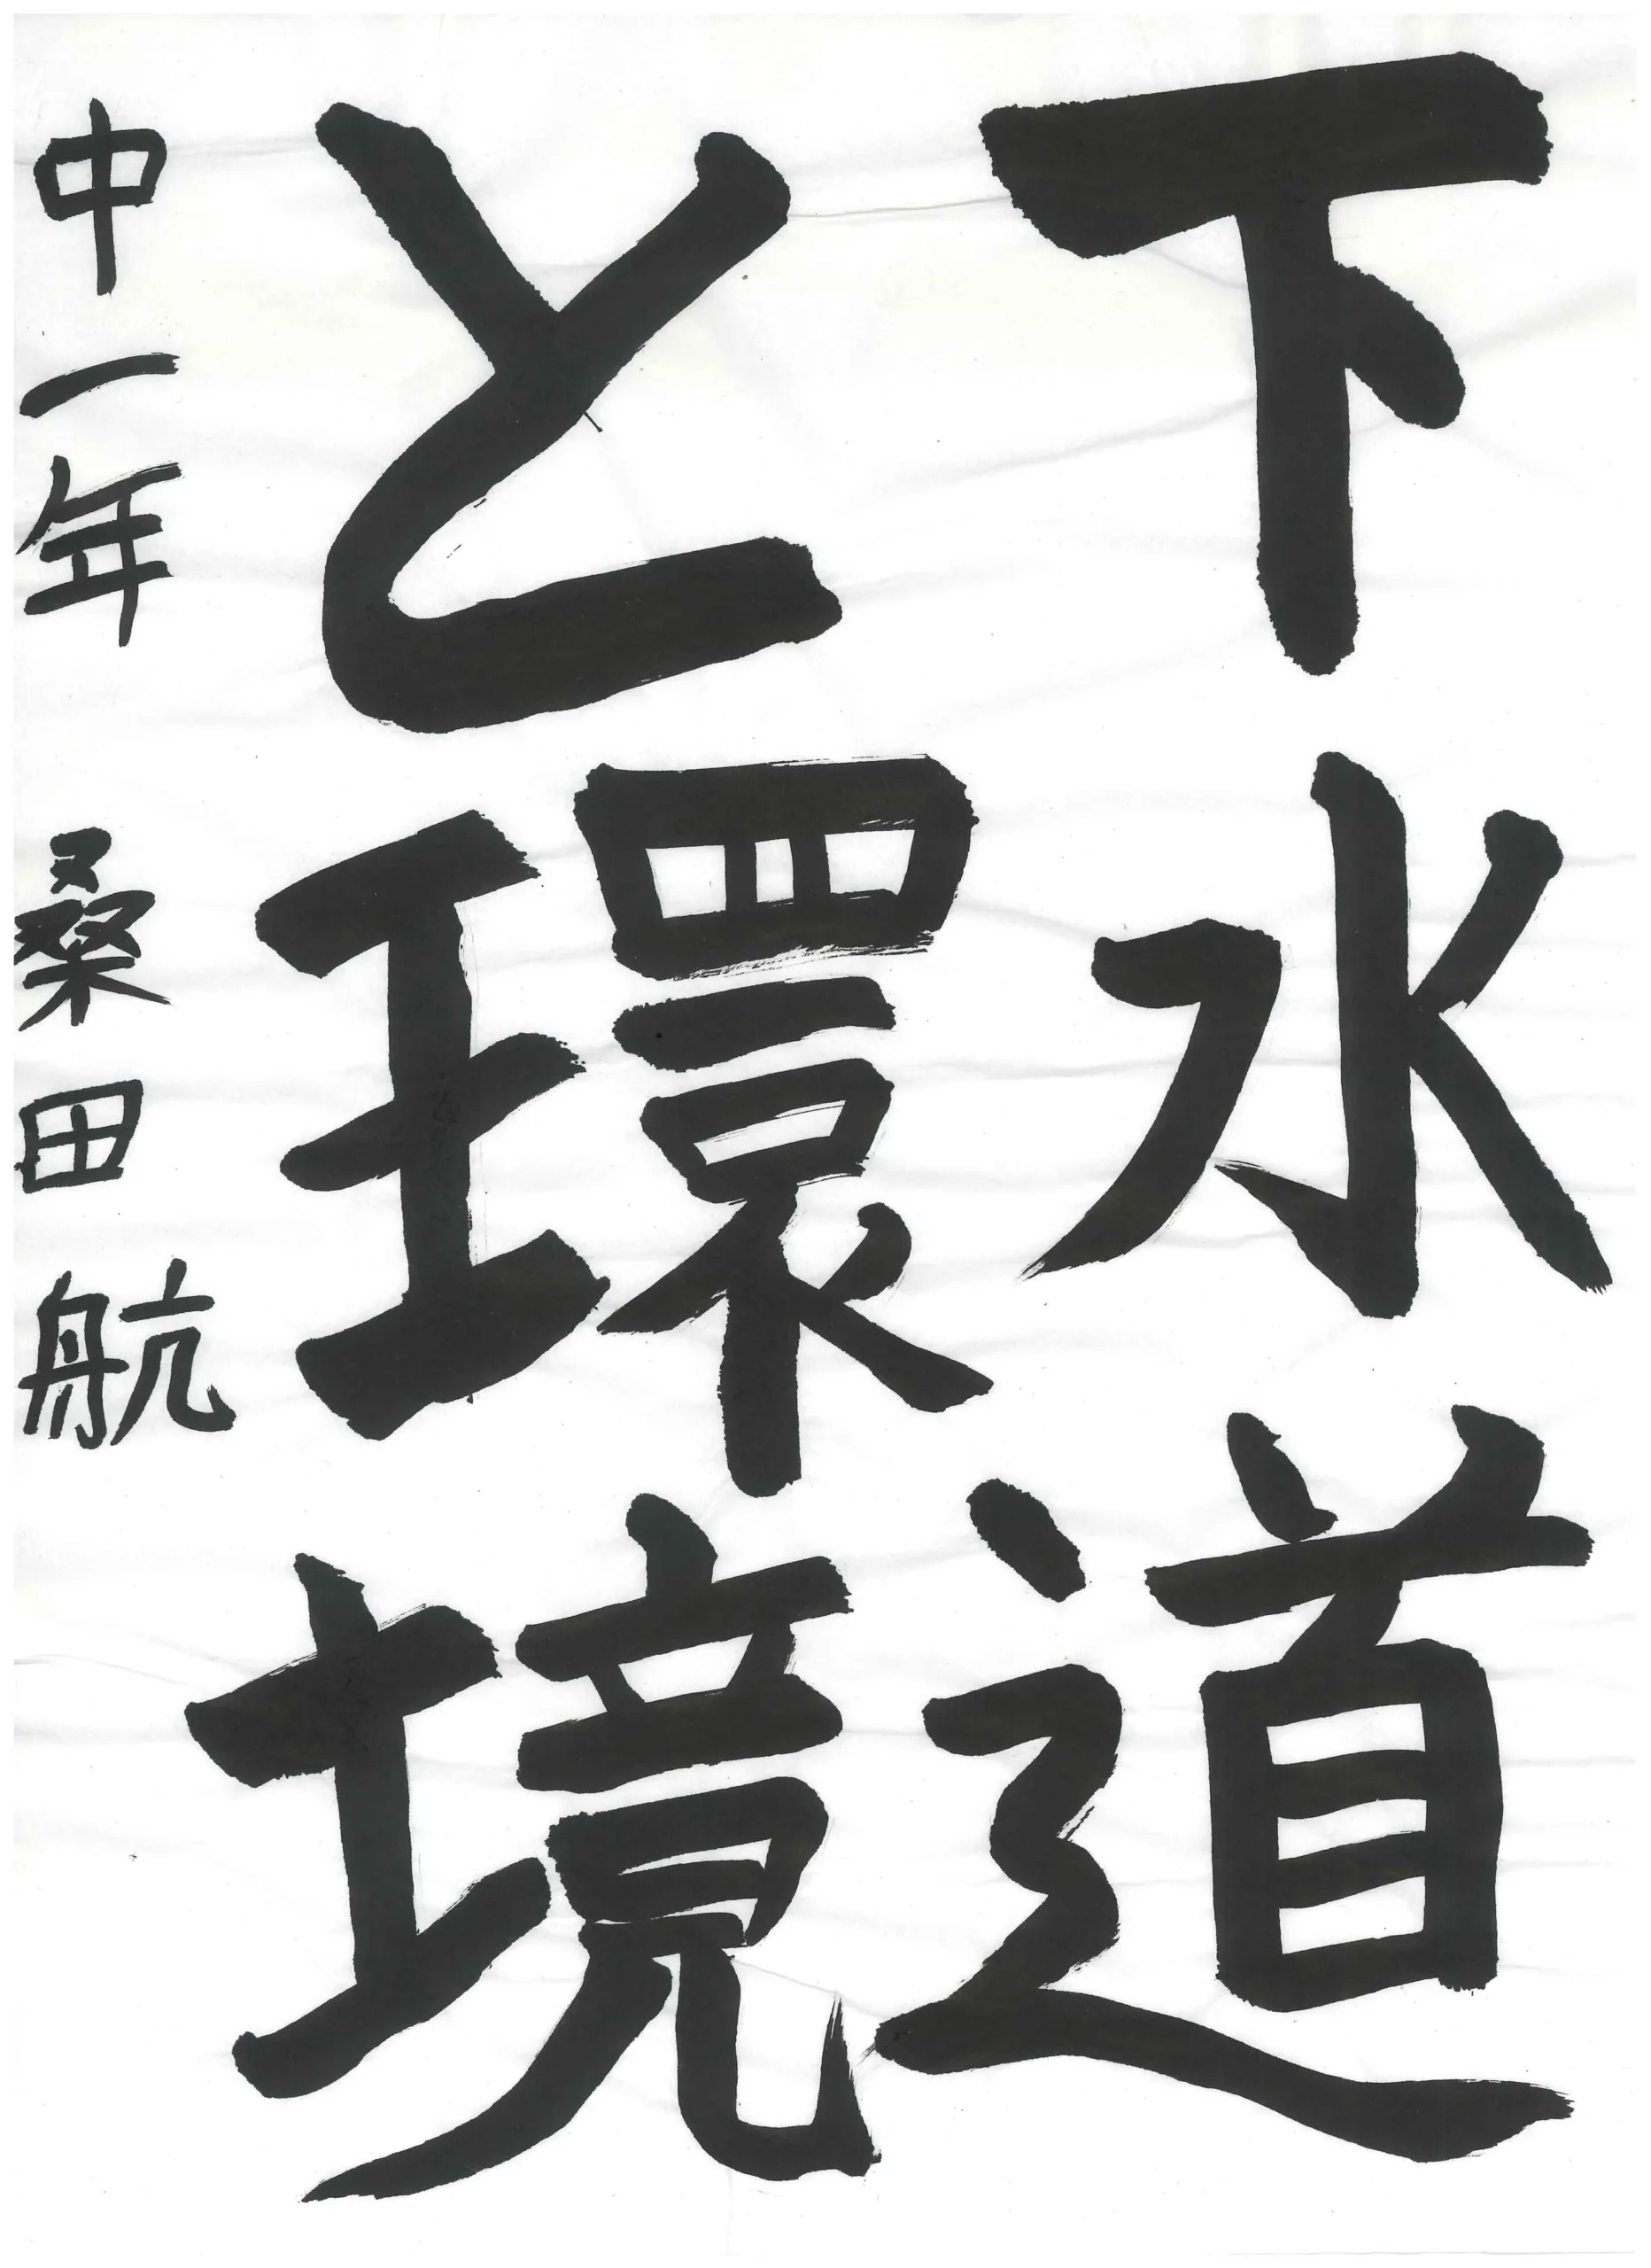 下水道
と環境
中一年 桑田航